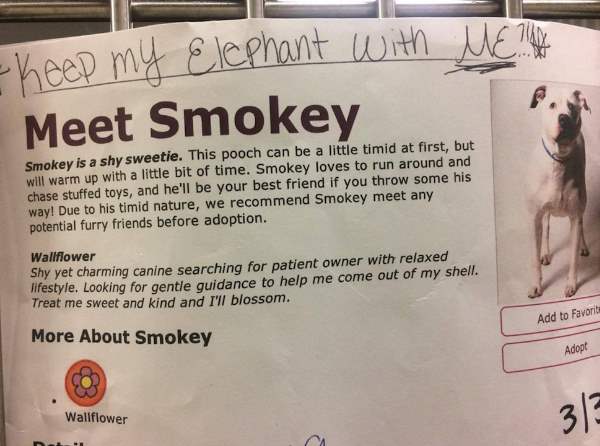 * Keep my Elephant with ME...!!
Meet Smokey
Smokey is a shy sweetie. This pooch can be a little timid at first, but
will warm up with a little bit of time. Smokey loves to run around and
chase stuffed toys, and he'll be your best friend if you throw some his
way! Due to his timid nature, we recommend Smokey meet any
potential furry friends before adoption.
Wallflower
Shy yet charming canine searching for patient owner with relaxed
lifestyle. Looking for gentle guidance to help me come out of my shell.
Treat me sweet and kind and I'll blossom.
Add to Favorite
Adopt
More About Smokey
Wallflower
3/3